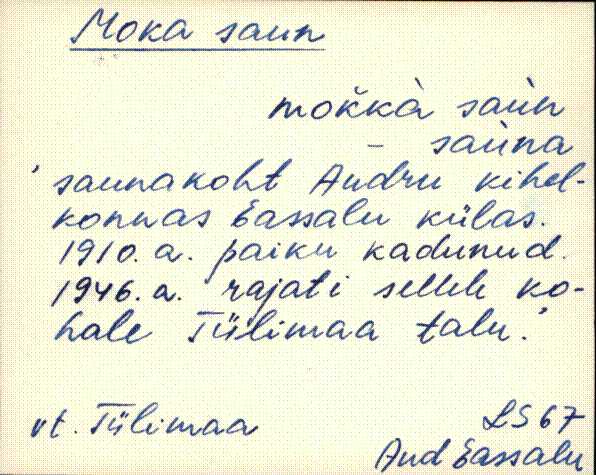 Moka saun
mok̆kà saùn
– saùna
'saunakoht Audru kihel-
konnas Eassalu külas.
1910. a. paiku kadunud.
1946. a. rajati sellele ko-
hale Tiilimaa talu.'
vt. Tiilimaa
LS 67
Aud Eassalu